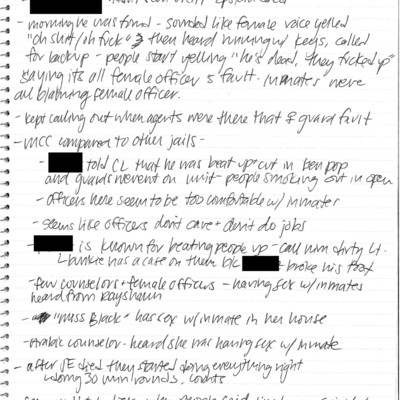 - morning he was found - sounded like female voice yelled
"oh shit/oh fuck" → then heard running w/ keys, called
for backup - people start yelling "he's dead, they fucked up"
saying its all female officer's fault. Inmates were
all blaming female officer.
- kept calling out when agents were there that ♀ guard fault
- MCC comparison to other jails -
- told CL that he was beat up + cut in gen pop
and guards weren't on unit - people smoking out in open
- officers here seem to be too comfortable w/ inmates
- seems like officers don't care + don't do jobs
- is known for beating people up - call him dirty Lt.
bunkie has a case on them b/c broke his
- few counselors + female officers - having sex w/ inmates
heard from Rayshaun
- "miss Black" has sex w/ inmate in her house
- Arabic counselor - heard she was having sex w/ inmate
- after JE died they started doing everything right
doing 30 min rounds, counts